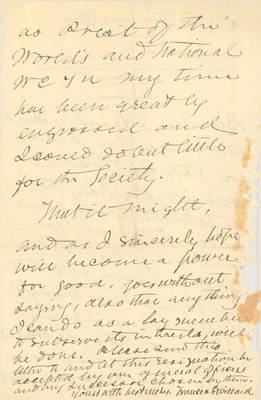 as Prest of the
World's and National
W C T U my time
has been greatly
engrossed and
I could do but little
for the Society.
That it might,
and as I sincerely hope
will become a power
for good, goes without
saying, also that anything
I can do as a lay member
to subserve its interests, will
be done. Please send this
letter to and let this resignation be
accepted by our special officers
and my successor chosen by them.
Yours with best wishes Frances E. Willard